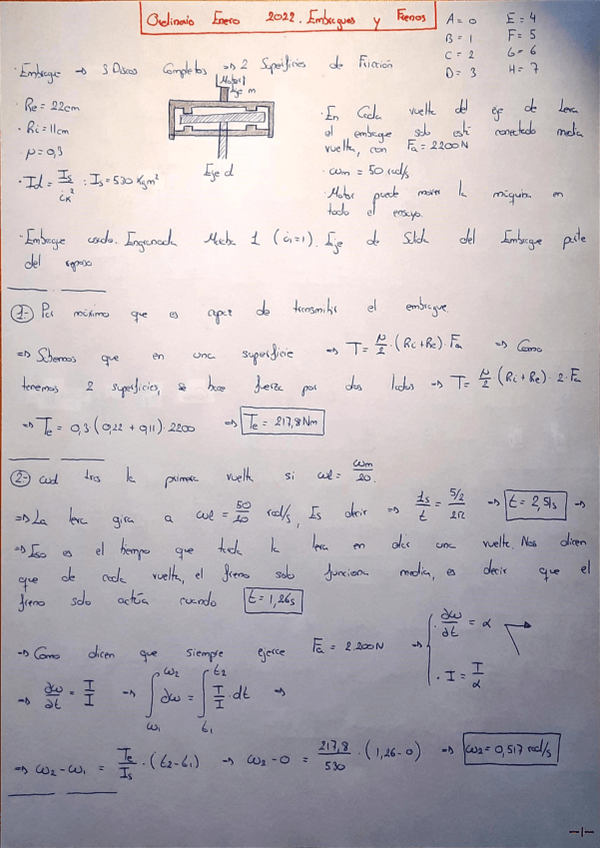 Ordinario Enero 2022. Embragues y Frenos
A = 0 E = 4
B = 1 F = 5
C = 2 G = 6
D = 3 H = 7
· Embrague → 3 Discos Completos ⇒ 2 Superficies de Fricción
· Re = 22cm
· Ri = 11cm
μ = 0,3
· Id = Is / ik² : Is = 530 Kgm²
Motor
Eje m
Eje d
· En Cada vuelta del eje de Leva
el embrague solo está conectado media
vuelta, con Fa = 2200N
· ωm = 50 rad/s
· Motor puede mover la máquina en
todo el ensayo.
· Embrague usado. Engranada Marcha 1 (i1 = 1). Eje de Salida del Embrague parte
del reposo
1.- Par máximo que es capaz de transmitir el embrague.
⇒ Sabemos que en una superficie ⇒ T = μ/2 · (Ri + Re) · Fa ⇒ Como
tenemos 2 superficies, se hace fuerza por dos lados ⇒ T = μ/2 (Ri + Re) · 2 · Fa
⇒ Te = 0,3 (0,22 + 0,11) · 2200 ⇒ Te = 217,8Nm
2.- ωd tras la primera vuelta si ωl = ωm/20.
⇒ La leva gira a ωl = 50/20 rad/s, Es decir ⇒ 1s/t = 5/2 / 2π ⇒ t = 2,51s ⇒
⇒ Eso es el tiempo que tarda la leva en dar una vuelta. Nos dicen
que de cada vuelta, el freno solo funciona media, es decir que el
freno solo actúa cuando t = 1,26s
⇒ Como dicen que siempre ejerce Fa = 2.200N ⇒ · ∂ω/∂t = α
· I = T/α
⇒ ∂ω/∂t = T/I ⇒ ∫ω1ω2 ∂ω = ∫t1t2 T/I · dt ⇒
⇒ ω2 - ω1 = Te/Is · (t2 - t1) ⇒ ω2 - 0 = 217,8/530 · (1,26 - 0) ⇒ ω2 = 0,517 rad/s
-1-